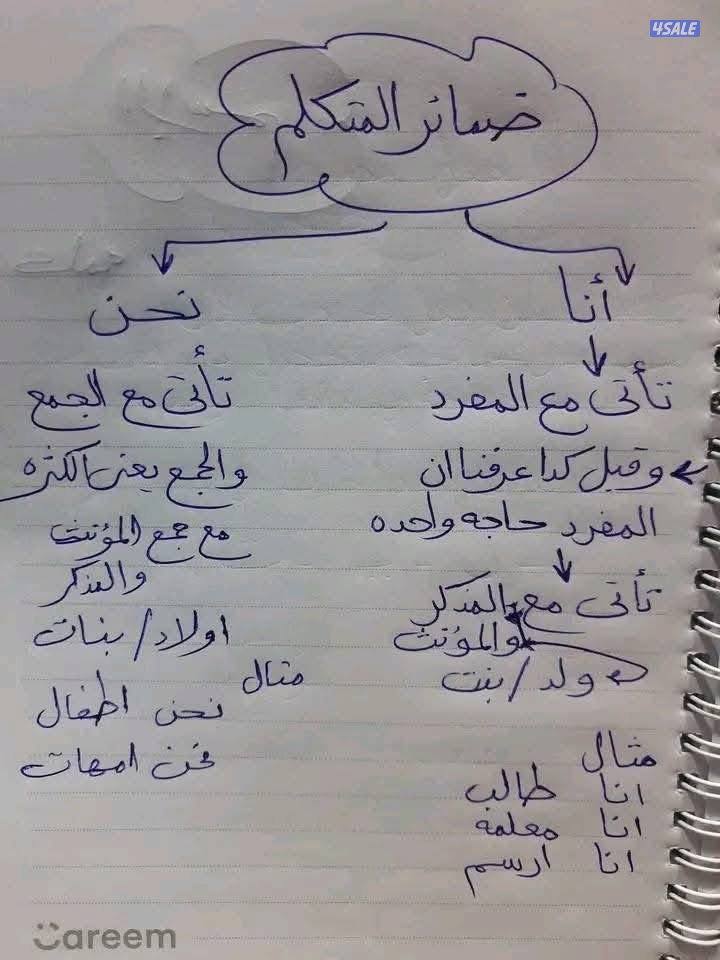 4SALE
ضمائر المتكلم
أنا
تأتى مع المفرد
وقبل كدا عرفنا ان
المفرد حاجه واحده
تأتى مع المذكر
والمؤنث
ولد / بنت
مثال
انا طالب
انا معلمه
انا ارسم
نحن
تأتى مع الجمع
والجمع يعنى الكثره
مع جمع المؤنث
والمذكر
اولاد / بنات
مثال
نحن اطفال
نحن امهات
Careem